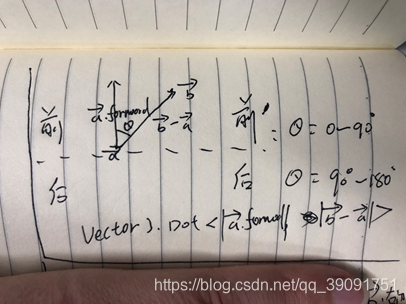 前 a.forward b 前: θ = 0-90°
θ b-a
a
后 后 θ = 90°-180°
Vector3.Dot <|a.forward| |b-a|>
https://blog.csdn.net/qq_39091751